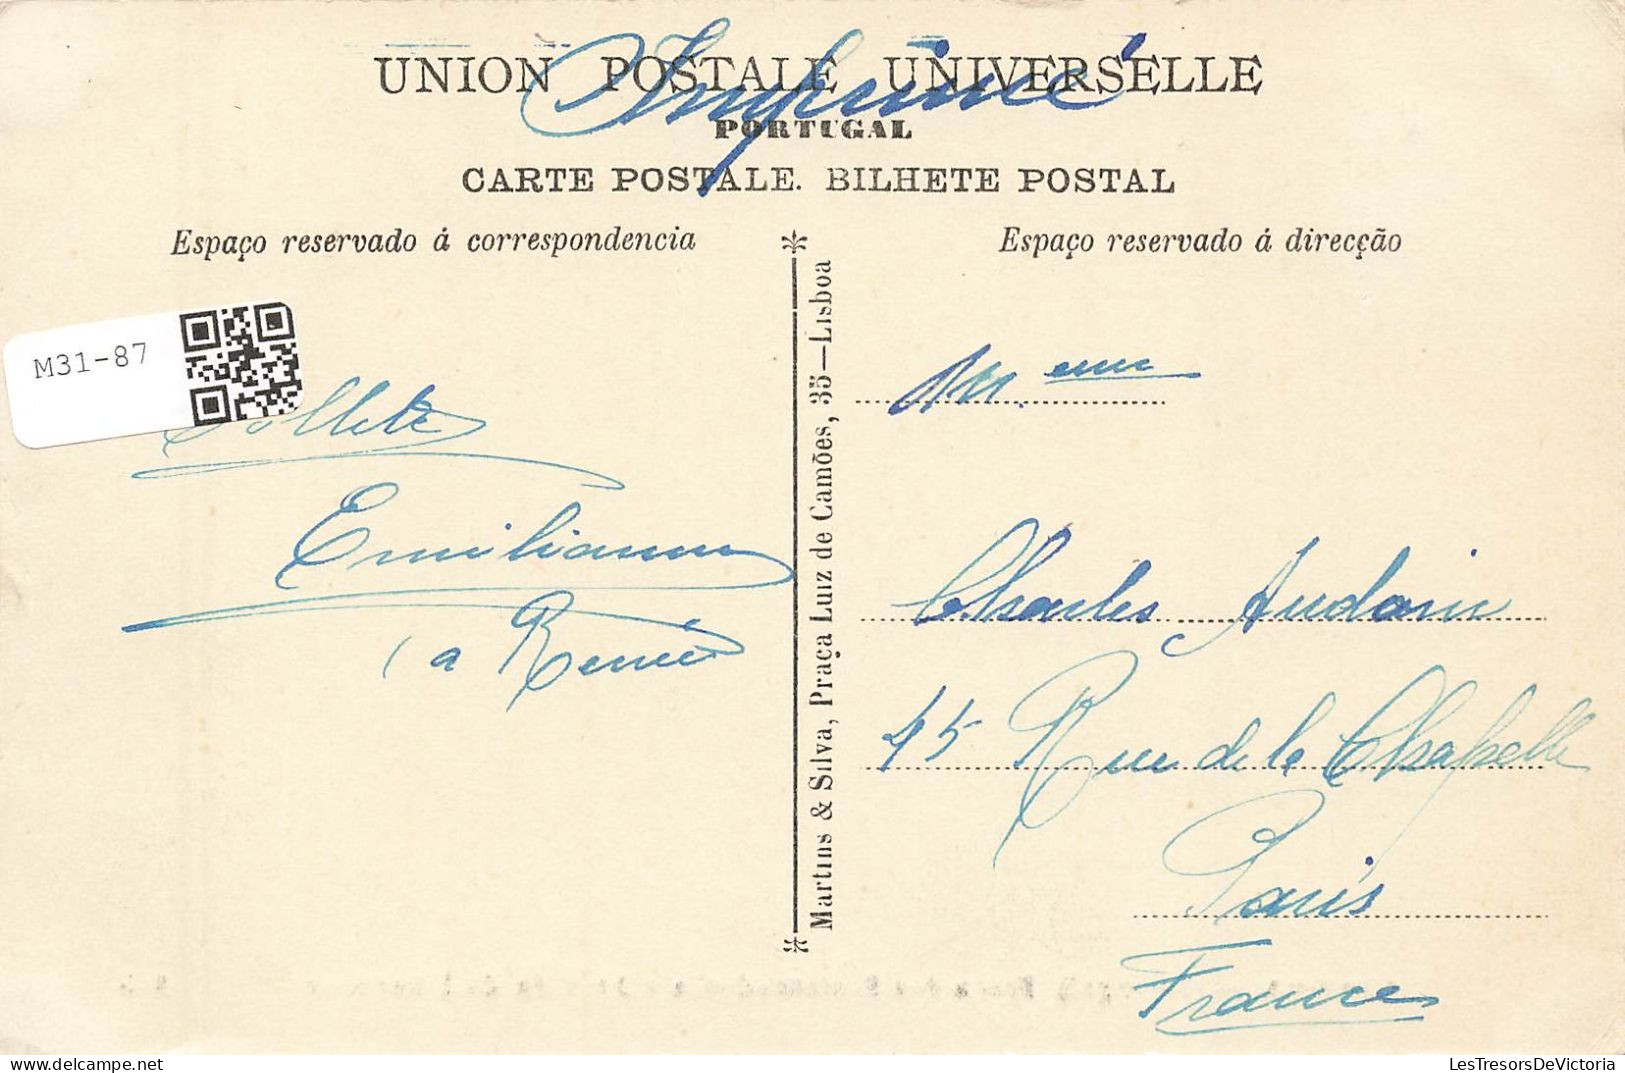 UNION POSTALE UNIVERSELLE
Imprimé
PORTUGAL
CARTE POSTALE. BILHETE POSTAL
Espaço reservado á correspondencia
Espaço reservado á direcção
M31-87
Emilianne
a René
Martins & Silva, Praça Luiz de Camões, 35—Lisboa
Charles
45 Rue de la Chapelle
Paris
France
LesTresorsDeVictoria